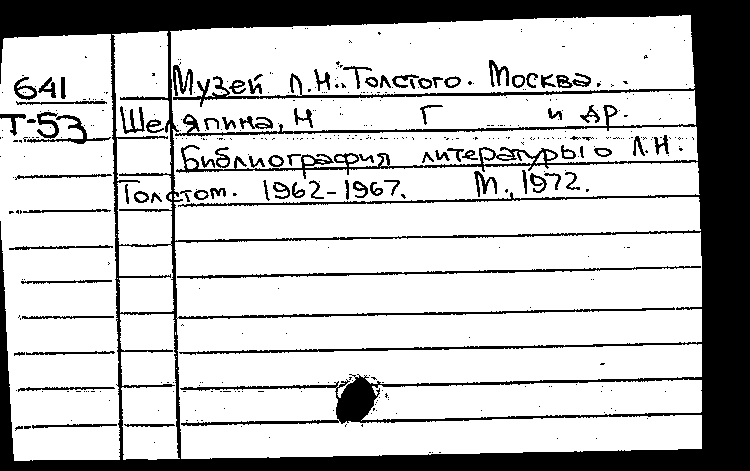 641
Т-53
Музей Л.Н. Толстого. Москва...
Шеляпина, Н Г и др.
Библиография литературы о Л.Н.
Толстом. 1962-1967. М., 1972.